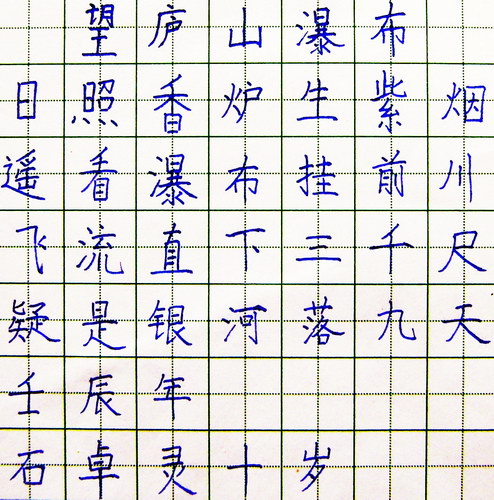 望庐山瀑布
日照香炉生紫烟
遥看瀑布挂前川
飞流直下三千尺
疑是银河落九天
壬辰年
石卓灵十岁